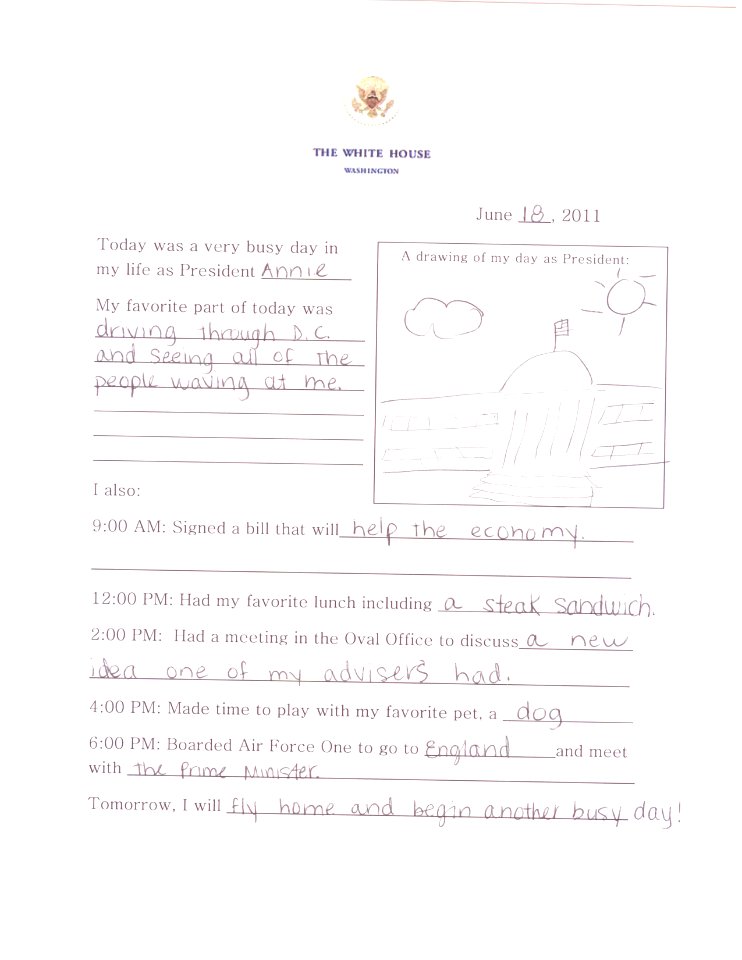 THE WHITE HOUSE
WASHINGTON
June 18, 2011
Today was a very busy day in
my life as President Annie
My favorite part of today was
driving through D.C.
and seeing all of the
people waving at me.
A drawing of my day as President:
I also:
9:00 AM: Signed a bill that will help the economy.
12:00 PM: Had my favorite lunch including a steak sandwich.
2:00 PM: Had a meeting in the Oval Office to discuss a new
idea one of my advisers had.
4:00 PM: Made time to play with my favorite pet, a dog
6:00 PM: Boarded Air Force One to go to England and meet
with the Prime Minister.
Tomorrow, I will fly home and begin another busy day!